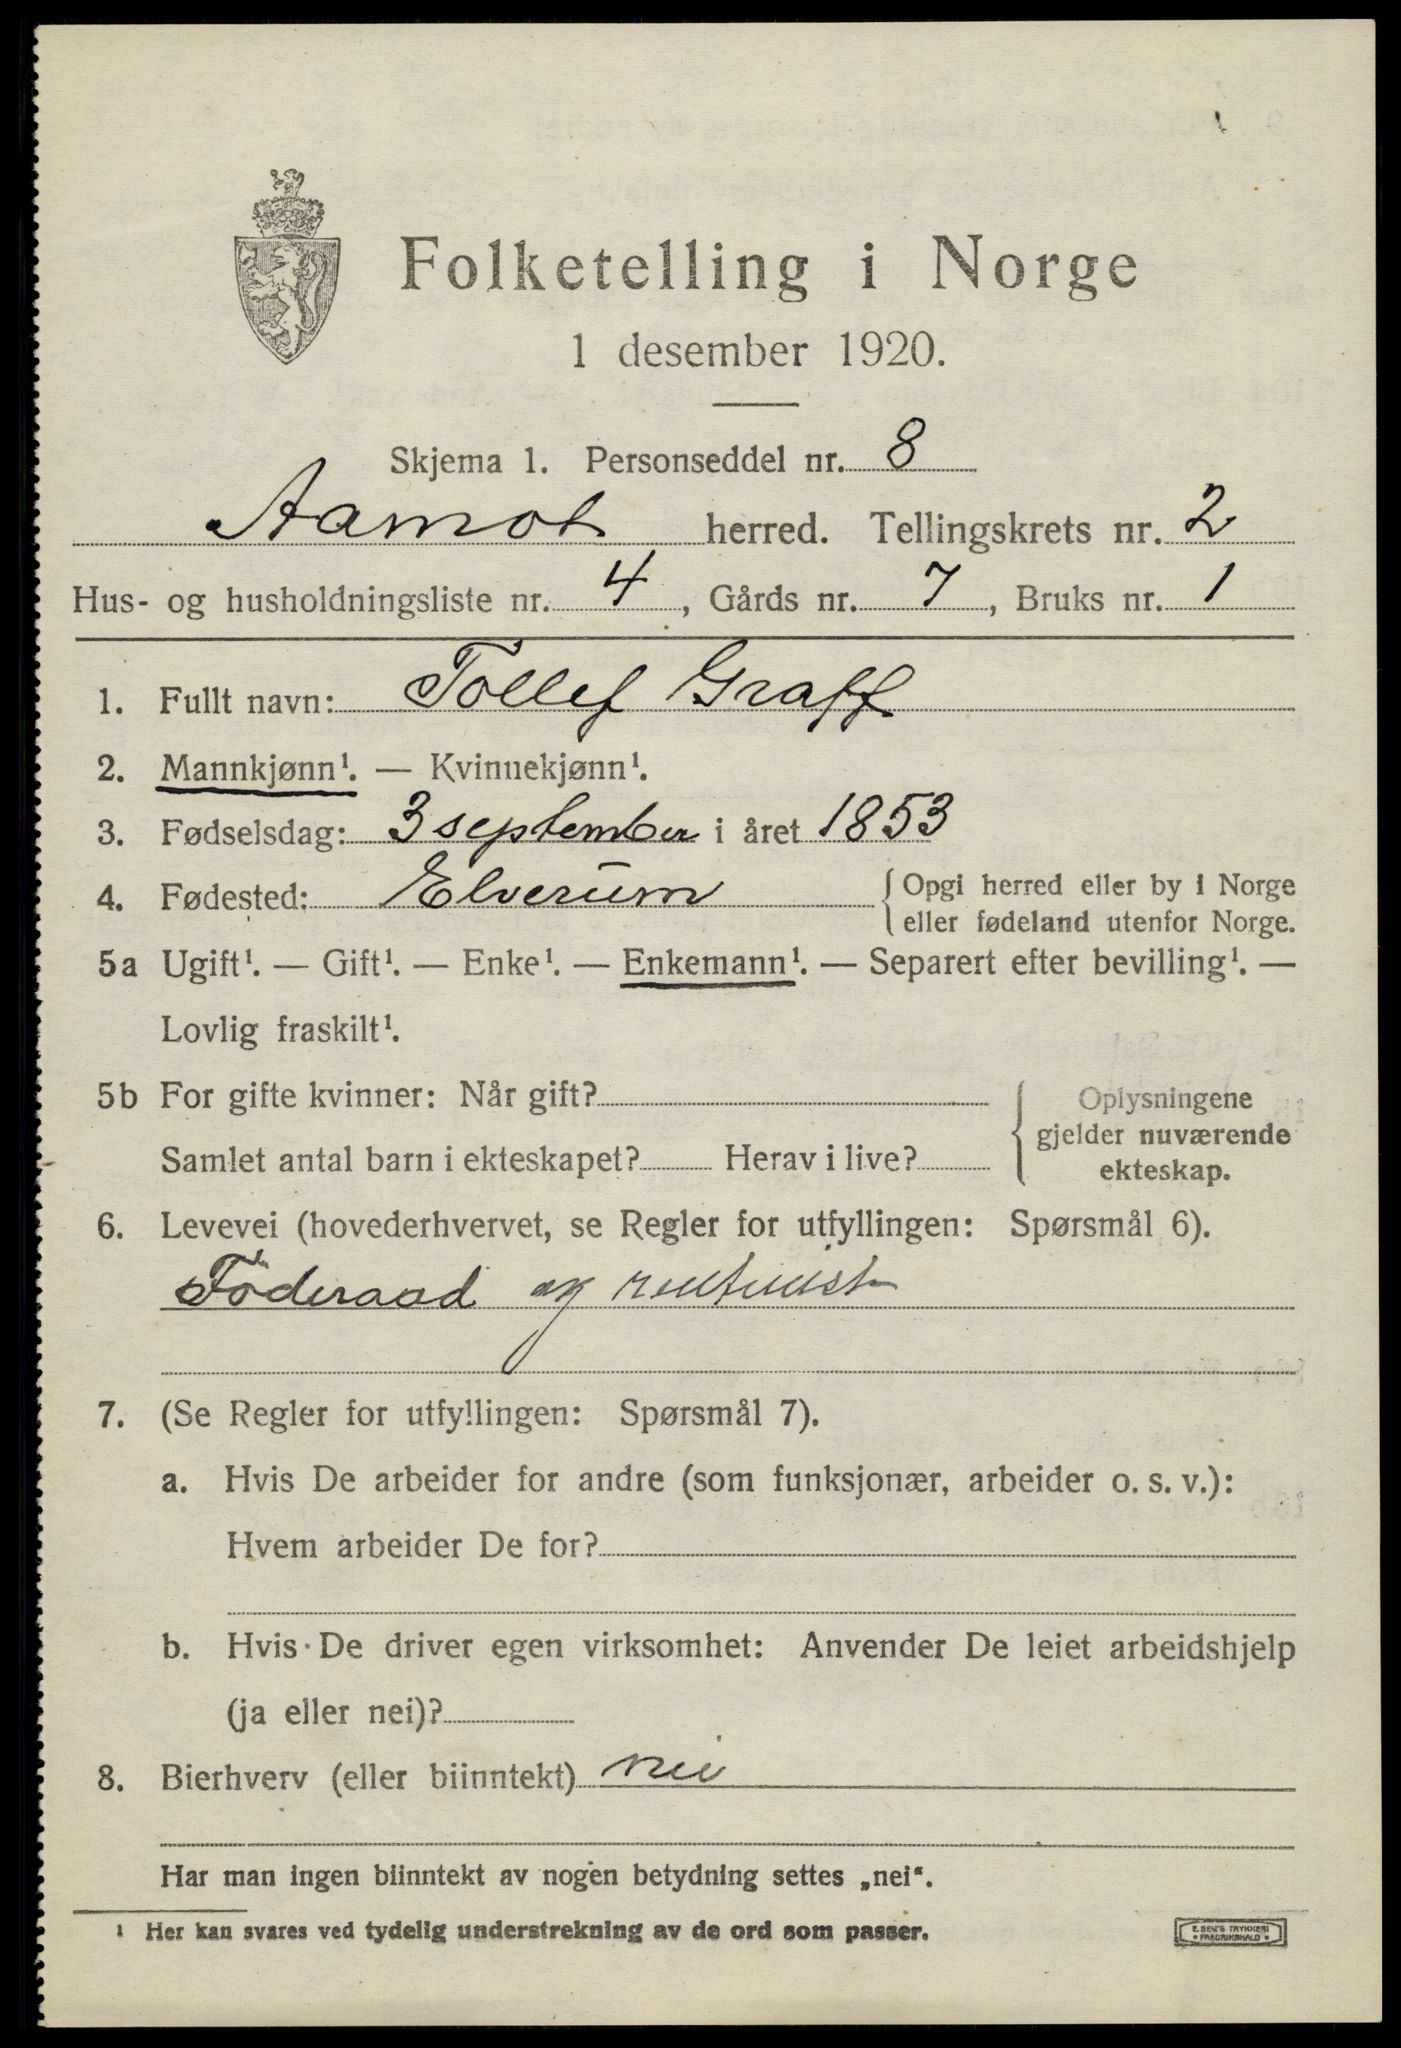 Folketelling i Norge
1 desember 1920.
Skjema 1. Personseddel nr. 8
Aamot herred. Tellingskrets nr. 2
Hus- og husholdningsliste nr. 4, Gårds nr. 7, Bruks nr. 1
1. Fullt navn: Tollef Graff
2. Mannkjønn¹. — Kvinnekjønn¹.
3. Fødselsdag: 3 september i året 1853
4. Fødested: Elverum { Opgi herred eller by i Norge
eller fødeland utenfor Norge.
5a Ugift¹. — Gift¹. — Enke¹. — Enkemann¹. — Separert efter bevilling¹. —
Lovlig fraskilt¹.
5b For gifte kvinner: Når gift? { Oplysningene
gjelder nuværende
Samlet antal barn i ekteskapet? Herav i live?
ekteskap.
6. Levevei (hovederhvervet, se Regler for utfyllingen: Spørsmål 6).
Föderaad og rentenist
7. (Se Regler for utfyllingen: Spørsmål 7).
a. Hvis De arbeider for andre (som funksjonær, arbeider o. s. v.):
Hvem arbeider De for?
b. Hvis De driver egen virksomhet: Anvender De leiet arbeidshjelp
(ja eller nei)?
8. Bierhverv (eller biinntekt) nei
Har man ingen biinntekt av nogen betydning settes „nei“.
¹ Her kan svares ved tydelig understrekning av de ord som passer.
E. SEM'S TRYKKERI
• FREDRIKSHALD •